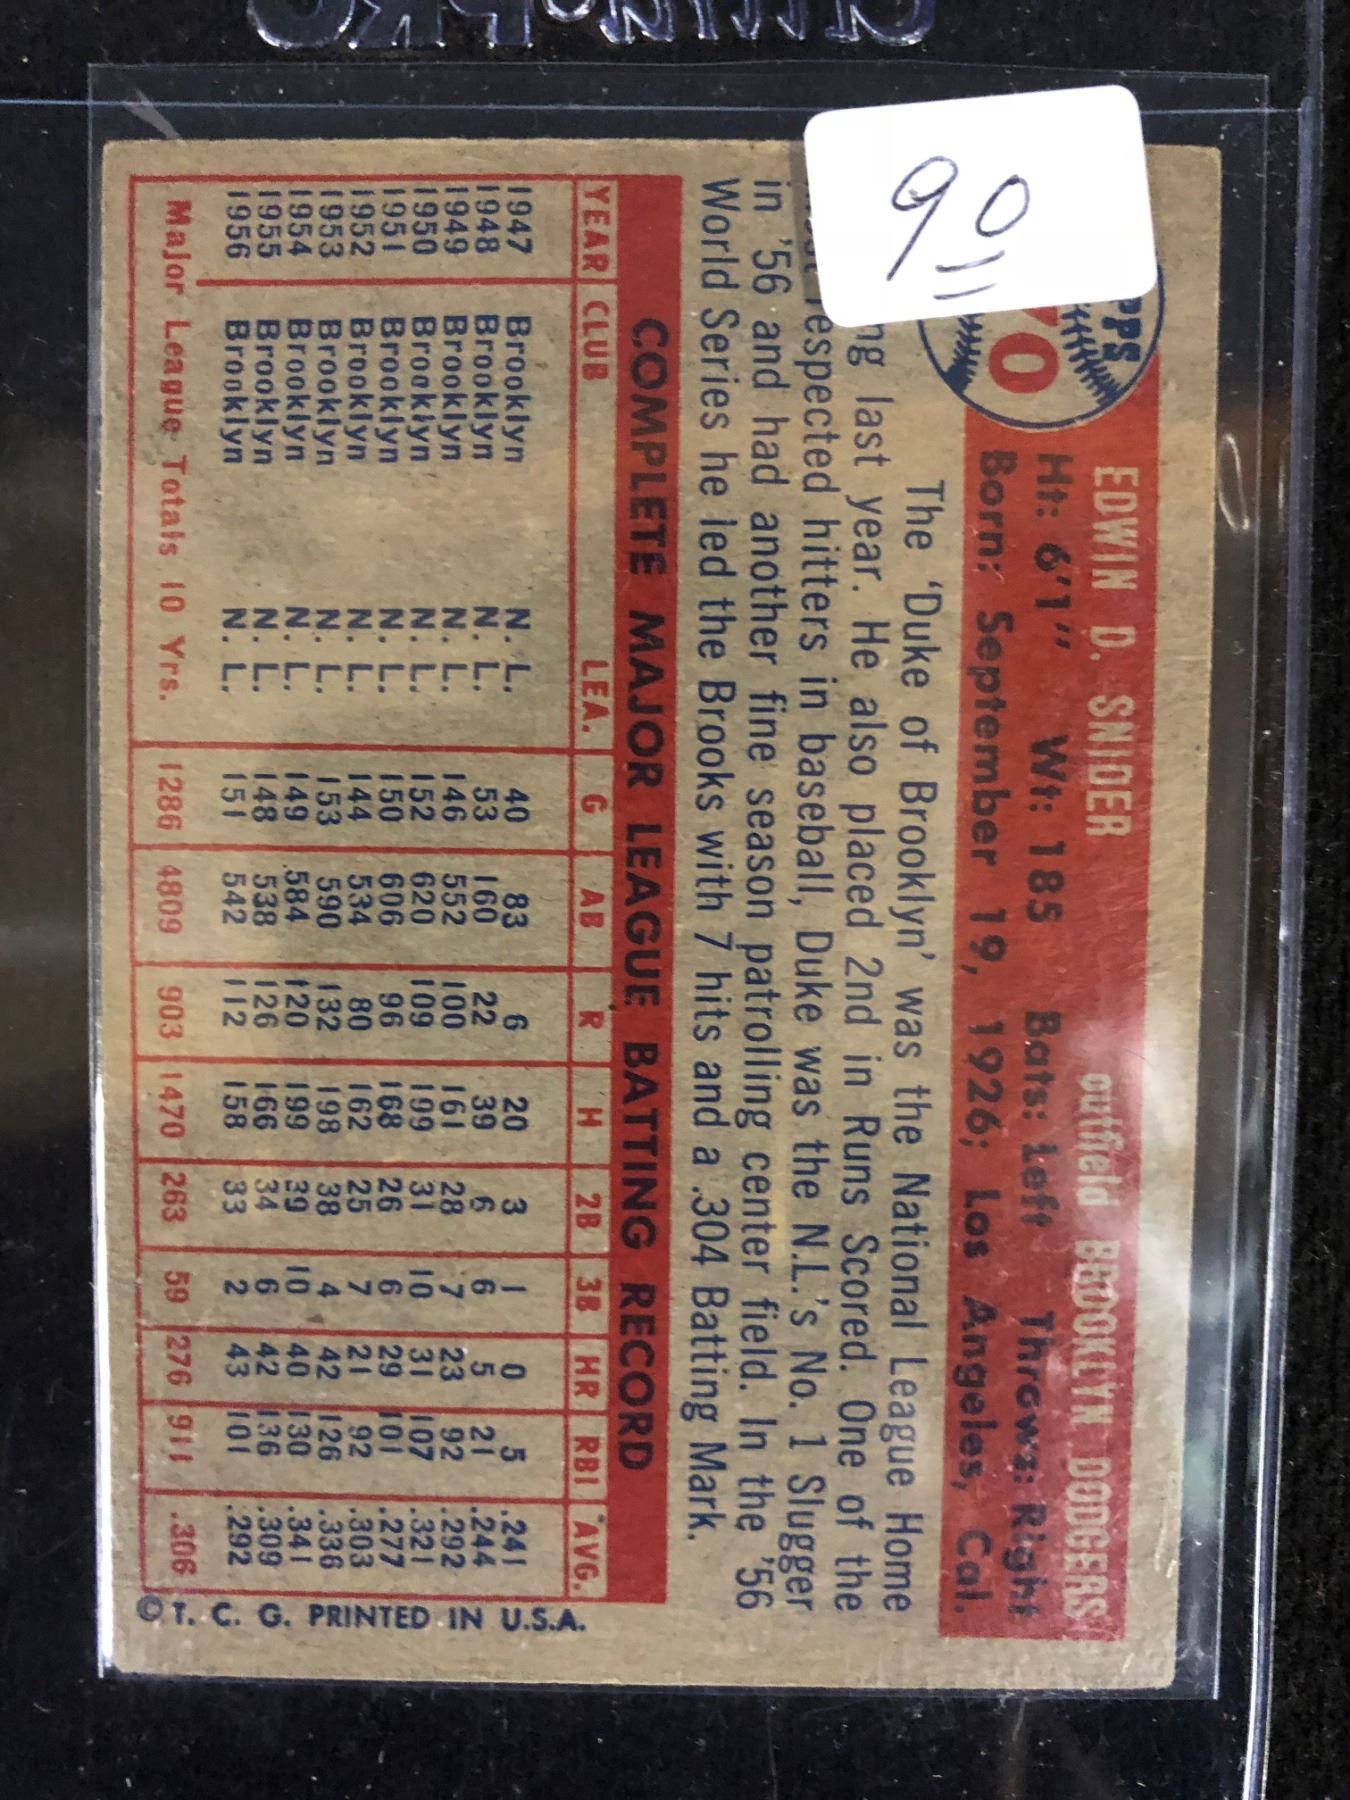 90
PPS
70
EDWIN D. SNIDER outfield BROOKLYN DODGERS
Ht: 6'1" Wt: 185 Bats: Left Throws: Right
Born: September 19, 1926; Los Angeles, Cal.
The 'Duke of Brooklyn' was the National League Home
ng last year. He also placed 2nd in Runs Scored. One of the
respected hitters in baseball, Duke was the N.L.'s No. 1 Slugger
in '56 and had another fine season patrolling center field. In the '56
World Series he led the Brooks with 7 hits and a .304 Batting Mark.
COMPLETE MAJOR LEAGUE BATTING RECORD
YEAR CLUB LEA. G AB R H 2B 3B HR RBI AVG.
1947 Brooklyn N. L. 40 83 6 20 3 1 0 5 .241
1948 Brooklyn N. L. 53 160 22 39 6 6 5 21 .244
1949 Brooklyn N. L. 146 552 100 161 28 7 23 92 .292
1950 Brooklyn N. L. 152 620 109 199 31 10 31 107 .321
1951 Brooklyn N. L. 150 606 96 168 26 6 29 101 .277
1952 Brooklyn N. L. 144 534 80 162 25 7 21 92 .303
1953 Brooklyn N. L. 153 590 132 198 38 4 42 126 .336
1954 Brooklyn N. L. 149 584 120 199 39 10 40 130 .341
1955 Brooklyn N. L. 148 538 126 166 34 6 42 136 .309
1956 Brooklyn N. L. 151 542 112 158 33 2 43 101 .292
Major League Totals 10 Yrs. 1286 4809 903 1470 263 59 276 911 .306
© T. C. G. PRINTED IN U.S.A.